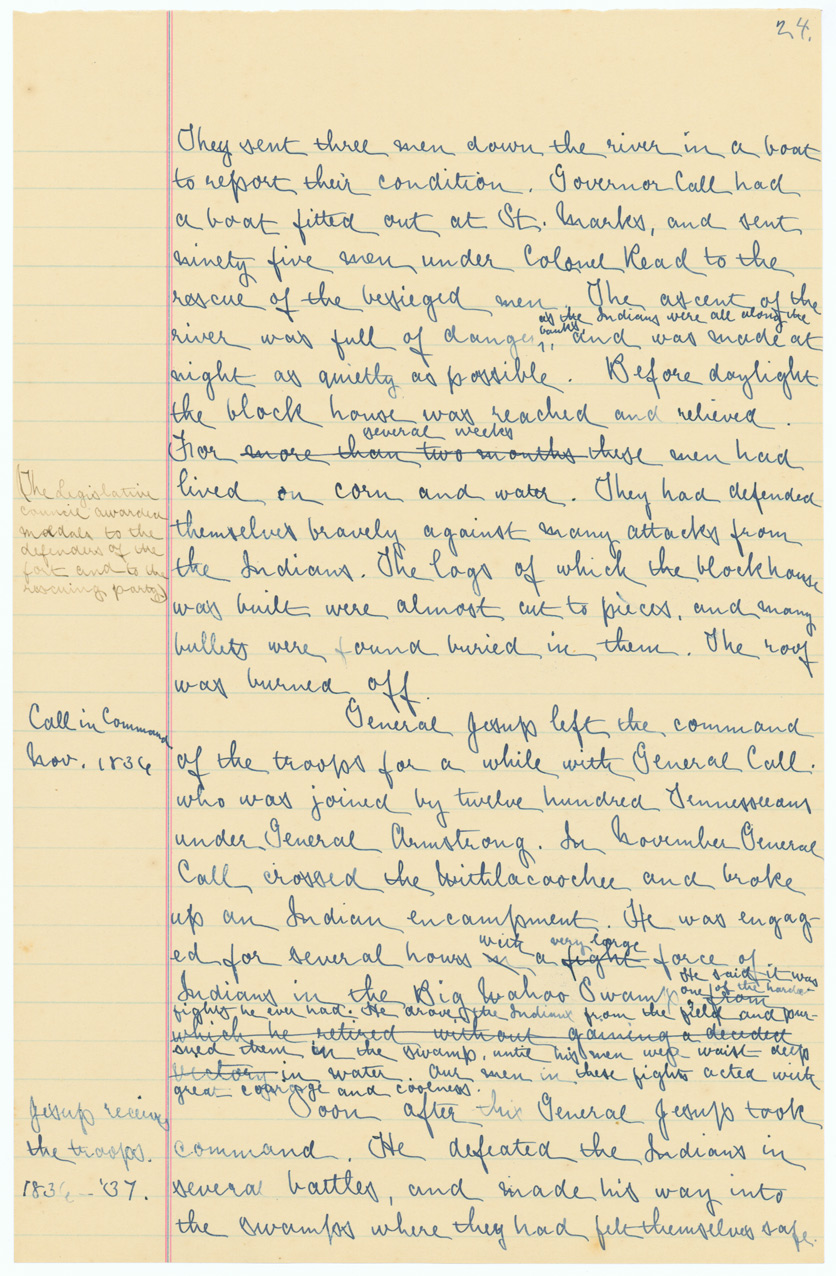 24.
They sent three men down the river in a boat
to report their condition. Governor Call had
a boat fitted out at St. Marks, and sent
ninety five men under Colonel Read to the
rescue of the besieged men. The ascent of the
as the Indians were all along the
banks,
river was full of danger, and was made at
night as quietly as possible. Before daylight
the block house was reached and relieved.
several weeks
For more than two months these men had
lived on corn and water. They had defended
themselves bravely against many attacks from
the Indians. The logs of which the blockhouse
was built were almost cut to pieces, and many
bullets were found buried in them. The roof
was burned off.
(The Legislative
council awarded
medals to the
defenders of the
fort and to the
rescuing party)
Call in Command
Nov. 1836
General Jesup left the command
of the troops for a while with General Call.
who was joined by twelve hundred Tennesseeans
under General Armstrong. In November General
Call crossed the Withlacoochee and broke
up an Indian encampment. He was engag-
with very large
ed for several hours in a fight force of
He said it was
Indians in the Big Wahoo Swamp from
one of the harde-
fights he ever had. He drove the Indians from the field and pur-
which he retired without gaining a decided
sued them in the swamp, until his men were waist deep
victory in water. Our men in these fights acted with
great courage and cooness.
Jesup receives
the troops.
1836-'37.
Soon after this General Jesup took
command. He defeated the Indians in
several battles, and made his way into
the swamps where they had felt themselves safe.